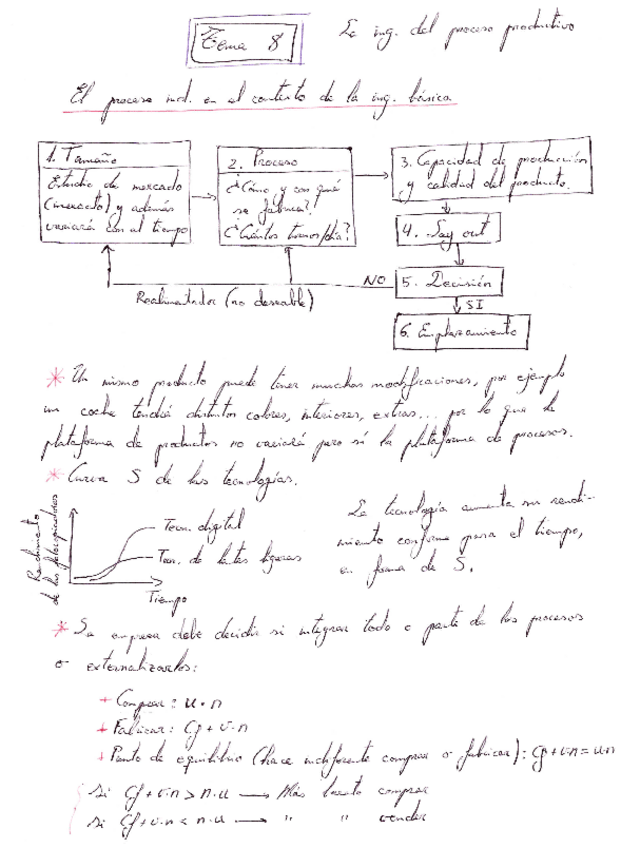 Tema 8
La ing. del proceso productivo
El proceso ind. en el contexto de la ing. básica
1. Tamaño
Estudio de mercado
(mercado) y además
variará con el tiempo
2. Proceso
¿Cómo y con qué
se fabrica?
¿Cuántos turnos/día?
3. Capacidad de producción
y calidad del producto.
4. Lay out
5. Decisión
NO
SI
Realimentador (no deseable)
6. Emplazamiento
* Un mismo producto puede tener muchas modificaciones, por ejemplo
un coche tendrá distintos colores, interiores, extras... por lo que la
plataforma de productos no variará pero sí la plataforma de procesos.
* Curva S de las tecnologías.
Rendimiento
de las
Tecn. digital
Tecn. de lentes ligeras
Tiempo
La tecnología aumenta su rendi-
miento conforme pasa el tiempo,
en forma de S.
* La empresa debe decidir si integrar todo o parte de los procesos
o externalizarlos:
+ Comprar: u·n
+ Fabricar: Cf + v·n
+ Punto de equilibrio (hace indiferente comprar o fabricar): Cf + v·n = u·n
Si Cf + v·n > n·u → Más barato comprar
Si Cf + v·n < n·u → " " vender